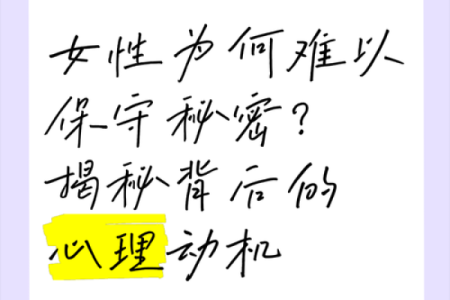 女性为何难以
保守秘密?
揭秘背后的
心理动机